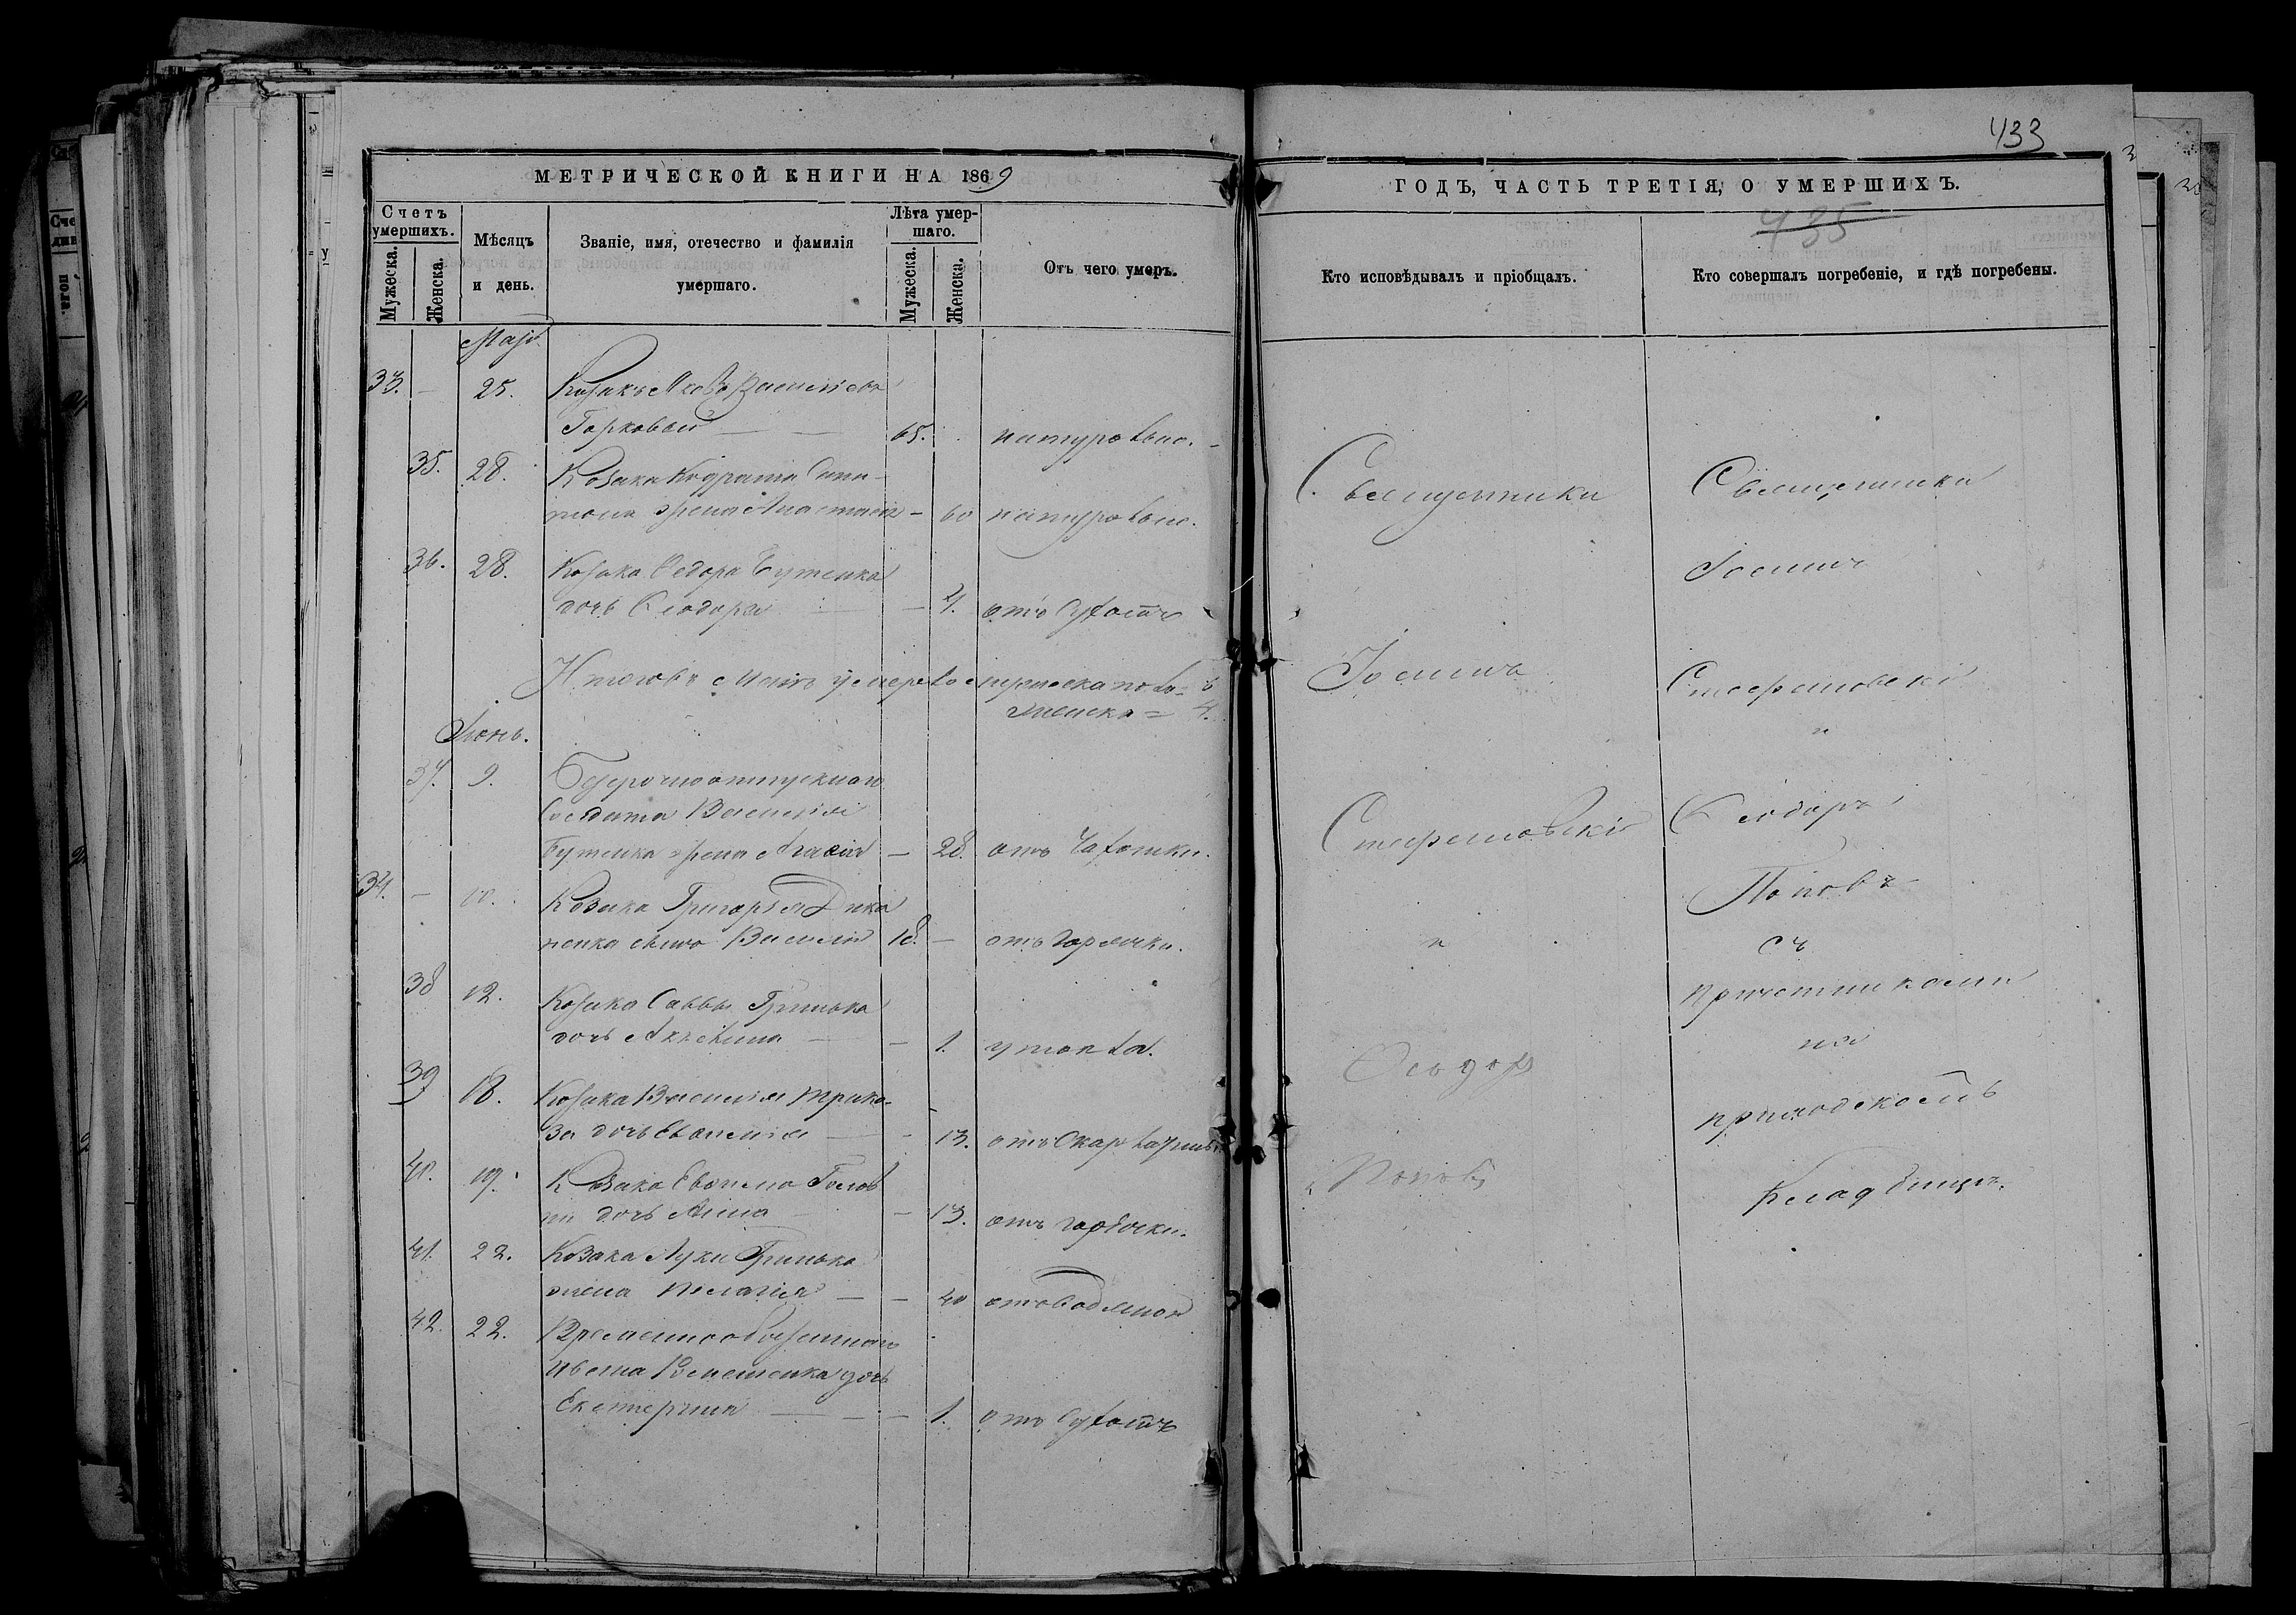 433
МЕТРИЧЕСКОЙ КНИГИ НА 1869
ГОДЪ, ЧАСТЬ ТРЕТІЯ, О УМЕРШИХЪ.
435
Счетъ умершихъ.
Мужеска.
Женска.
Мѣсяцъ и день.
Званіе, имя, отечество и фамилія умершаго.
Лѣта умершаго.
Мужеска.
Женска.
Отъ чего умеръ.
Кто исповѣдывалъ и пріобщалъ.
Кто совершалъ погребеніе, и гдѣ погребены.
33. — 25. Козакъ Яковъ Васильевъ
Горковый — 65. натурально.
35. 28. Козака Кодрата
жена Анастасія — 60 натурально.
36. 28. Козака Федора Бутенка
дочь Феодора — 4. отъ сухотъ
Итого въ Маіѣ умерло мужеска пола = 6
женска = 4.
Іюнь.
37. 9. Безсрочноотпускнаго
Солдата Василія
Бутенка жена Агафія — 28. отъ чахотки.
34. — 10. Козака Григорія Дика
ненка сынъ Василій 18. — отъ горячки.
38 12. Козака Саввы Гринька
дочь Акилина — 1. утопла.
39 18. Козака Василія
дочь Евфимія — 13. отъ скарлатины
40. 19. Козака Евфима
дочь Анна — 13. отъ горячки.
41. 22. Козака Луки Гринька
жена Пелагія — 40 отъ водяной
42. 22. Временнообязаннаго
Ивана дочь
Екатерина — 1. отъ сухотъ
Священники
Іоаннъ
Стефановскій
и
Феодоръ
Поповъ
Священники
Іоаннъ
Стефановскій
и
Феодоръ
Поповъ
съ
причетниками
на
приходскомъ
кладбищѣ.